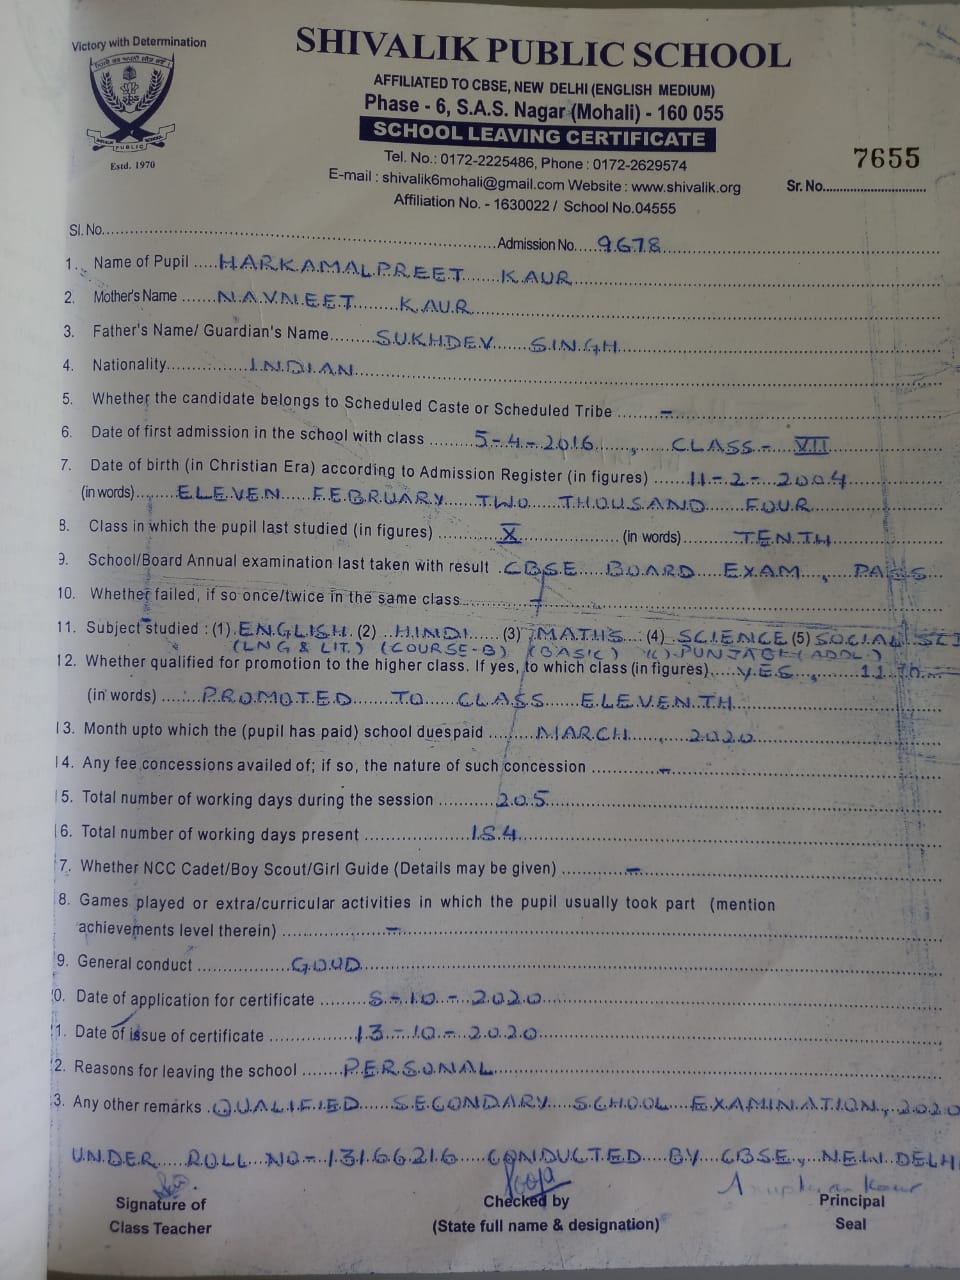 Victory with Determination
SHIVALIK PUBLIC SCHOOL
AFFILIATED TO CBSE, NEW DELHI (ENGLISH MEDIUM)
Phase - 6, S.A.S. Nagar (Mohali) - 160 055
SCHOOL LEAVING CERTIFICATE
PUBLIC
Estd. 1970
Tel. No.: 0172-2225486, Phone : 0172-2629574
E-mail : shivalik6mohali@gmail.com Website : www.shivalik.org
Affiliation No. - 1630022 / School No.04555
7655
Sr. No.
Sl. No. Admission No. 9678
1. Name of Pupil HARKAMALPREET KAUR
2. Mother's Name NAVNEET KAUR
3. Father's Name/ Guardian's Name SUKHDEV SINGH
4. Nationality INDIAN
5. Whether the candidate belongs to Scheduled Caste or Scheduled Tribe -
6. Date of first admission in the school with class 5-4-2016, CLASS- VII
7. Date of birth (in Christian Era) according to Admission Register (in figures) 11-2-2004
(in words) ELEVEN FEBRUARY TWO THOUSAND FOUR
8. Class in which the pupil last studied (in figures) X (in words) TENTH
9. School/Board Annual examination last taken with result CBSE BOARD EXAM, PASS
10. Whether failed, if so once/twice in the same class -
11. Subject studied : (1) ENGLISH (2) HINDI (3) MATHS (4) SCIENCE (5) SOCIAL SCI
(LNG & LIT.) (COURSE-B) (BASIC) PUNJABI (ADDL.)
12. Whether qualified for promotion to the higher class. If yes, to which class (in figures) YES, 11
(in words) PROMOTED TO CLASS ELEVENTH
13. Month upto which the (pupil has paid) school duespaid MARCH, 2020
14. Any fee concessions availed of; if so, the nature of such concession -
15. Total number of working days during the session 205
16. Total number of working days present
7. Whether NCC Cadet/Boy Scout/Girl Guide (Details may be given) -
8. Games played or extra/curricular activities in which the pupil usually took part (mention
achievements level therein) -
9. General conduct GOOD
0. Date of application for certificate -10-2020
1. Date of issue of certificate 13-10-2020
2. Reasons for leaving the school PERSONAL
3. Any other remarks QUALIFIED SECONDARY SCHOOL EXAMINATION, 2020
UNDER ROLL NO-13166216 CONDUCTED BY CBSE, NEW DELHI
Pooja
Signature of Checked by Principal
Class Teacher (State full name & designation) Seal